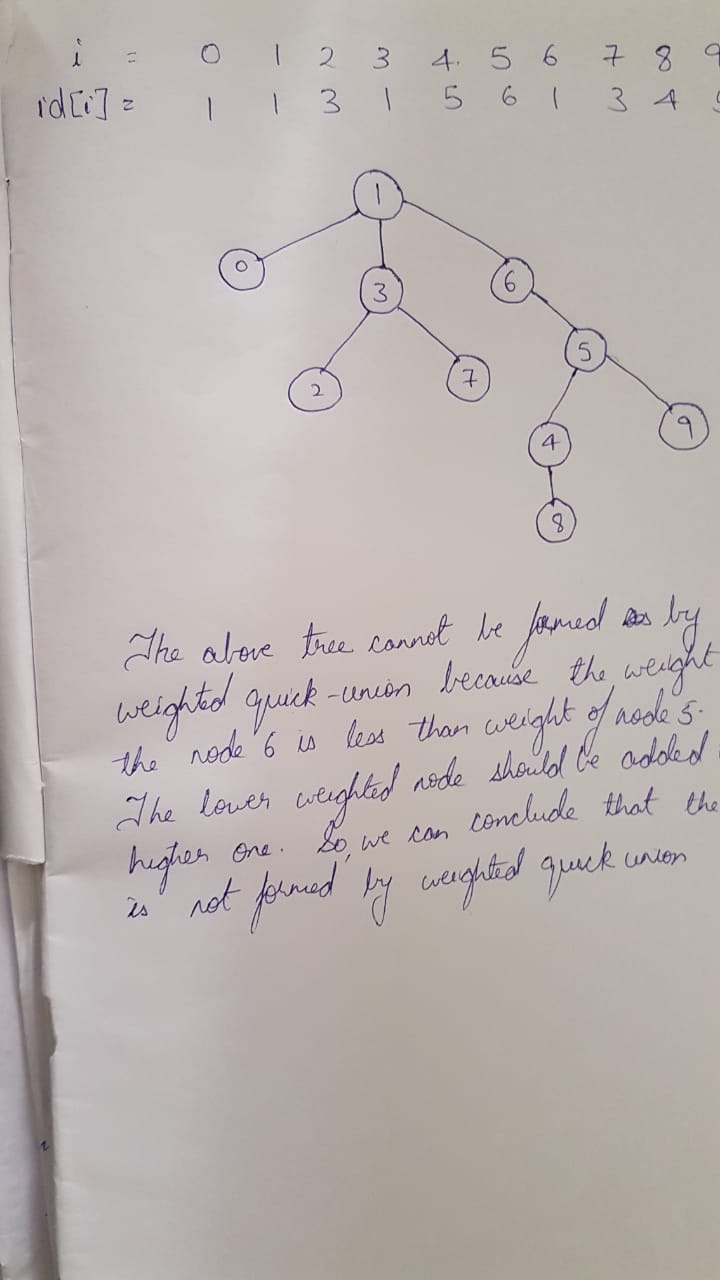 i = 0 1 2 3 4. 5 6 7 8 9
id[i] = 1 1 3 1 5 6 1 3 4
1
0 3 6
5
2 7
4 9
8
The above tree cannot be formed by
weighted quick-union because the weight
the node 6 is less than weight of node 5.
The lower weighted node should be added
higher one. So, we can conclude that the
is not formed by weighted quick union